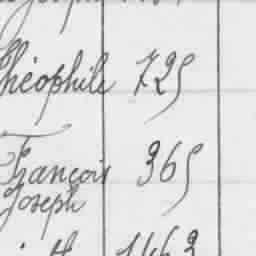 Théophile 725
François 365
Joseph